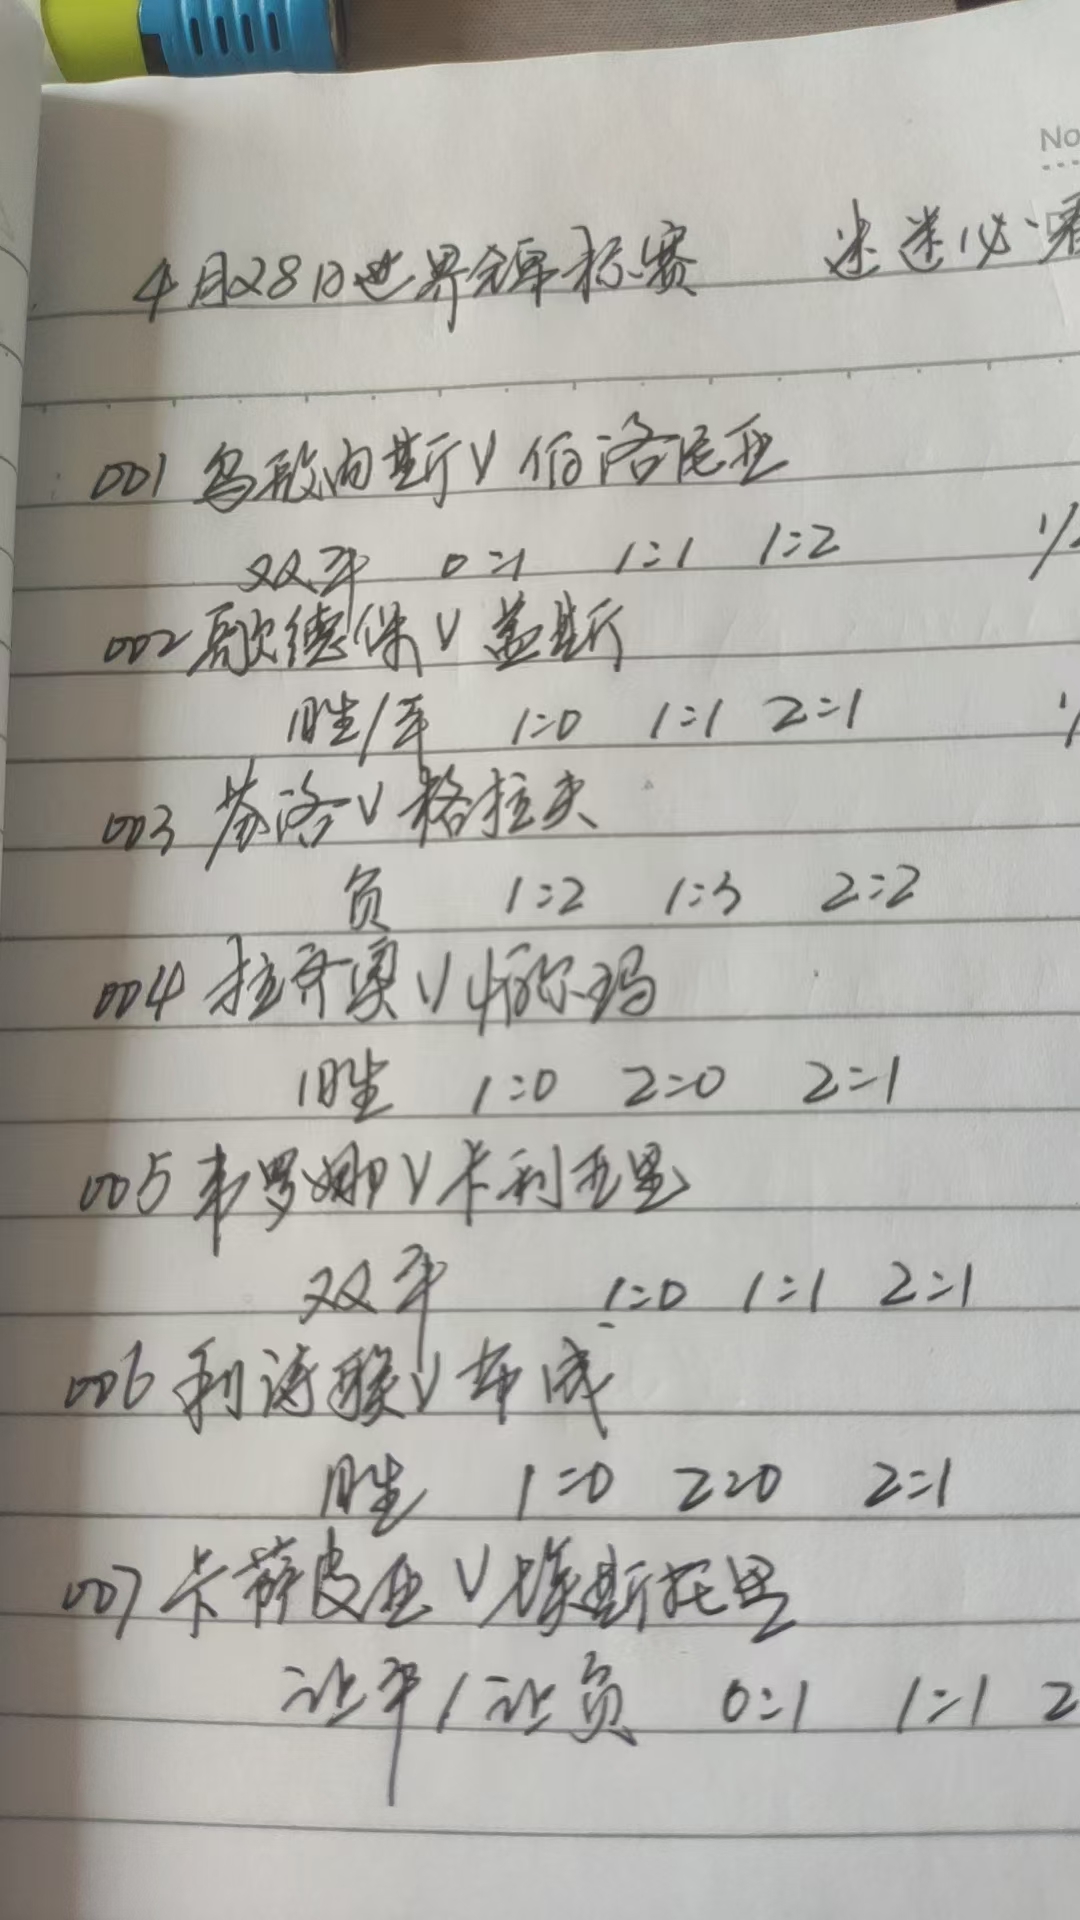 No
4月28日世界锦标赛 迷迷必看
001 乌敌内斯V伯洛尼亚
双平 0:1 1:1 1:2
002 歌德保V盖斯
胜/平 1:0 1:1 2:1
003 芬洛V格拉夫
负 1:2 1:3 2:2
004 拉齐奥V帕尔玛
胜 1:0 2:0 2:1
005 韦罗娜V卡利亚里
双平 1:0 1:1 2:1
006 利诗酸V布成
胜 1:0 2:0 2:1
007 卡萨皮亚V埃斯托里
让平/让负 0:1 1:1 2